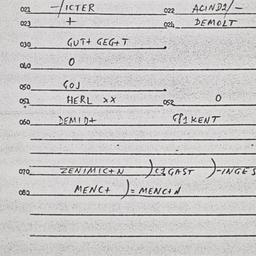 021 -/ICTER 022 ACIND2/-
023 + 024 DEMOLT
030 GUT+ GEG+T
040 O
050 GOJ
051 HERL xx 052 O
060 DEMID+ GP1KENT
070 ZENIMIC+N )C1GAST )-INGES
080 MENC+ )=MENC+N